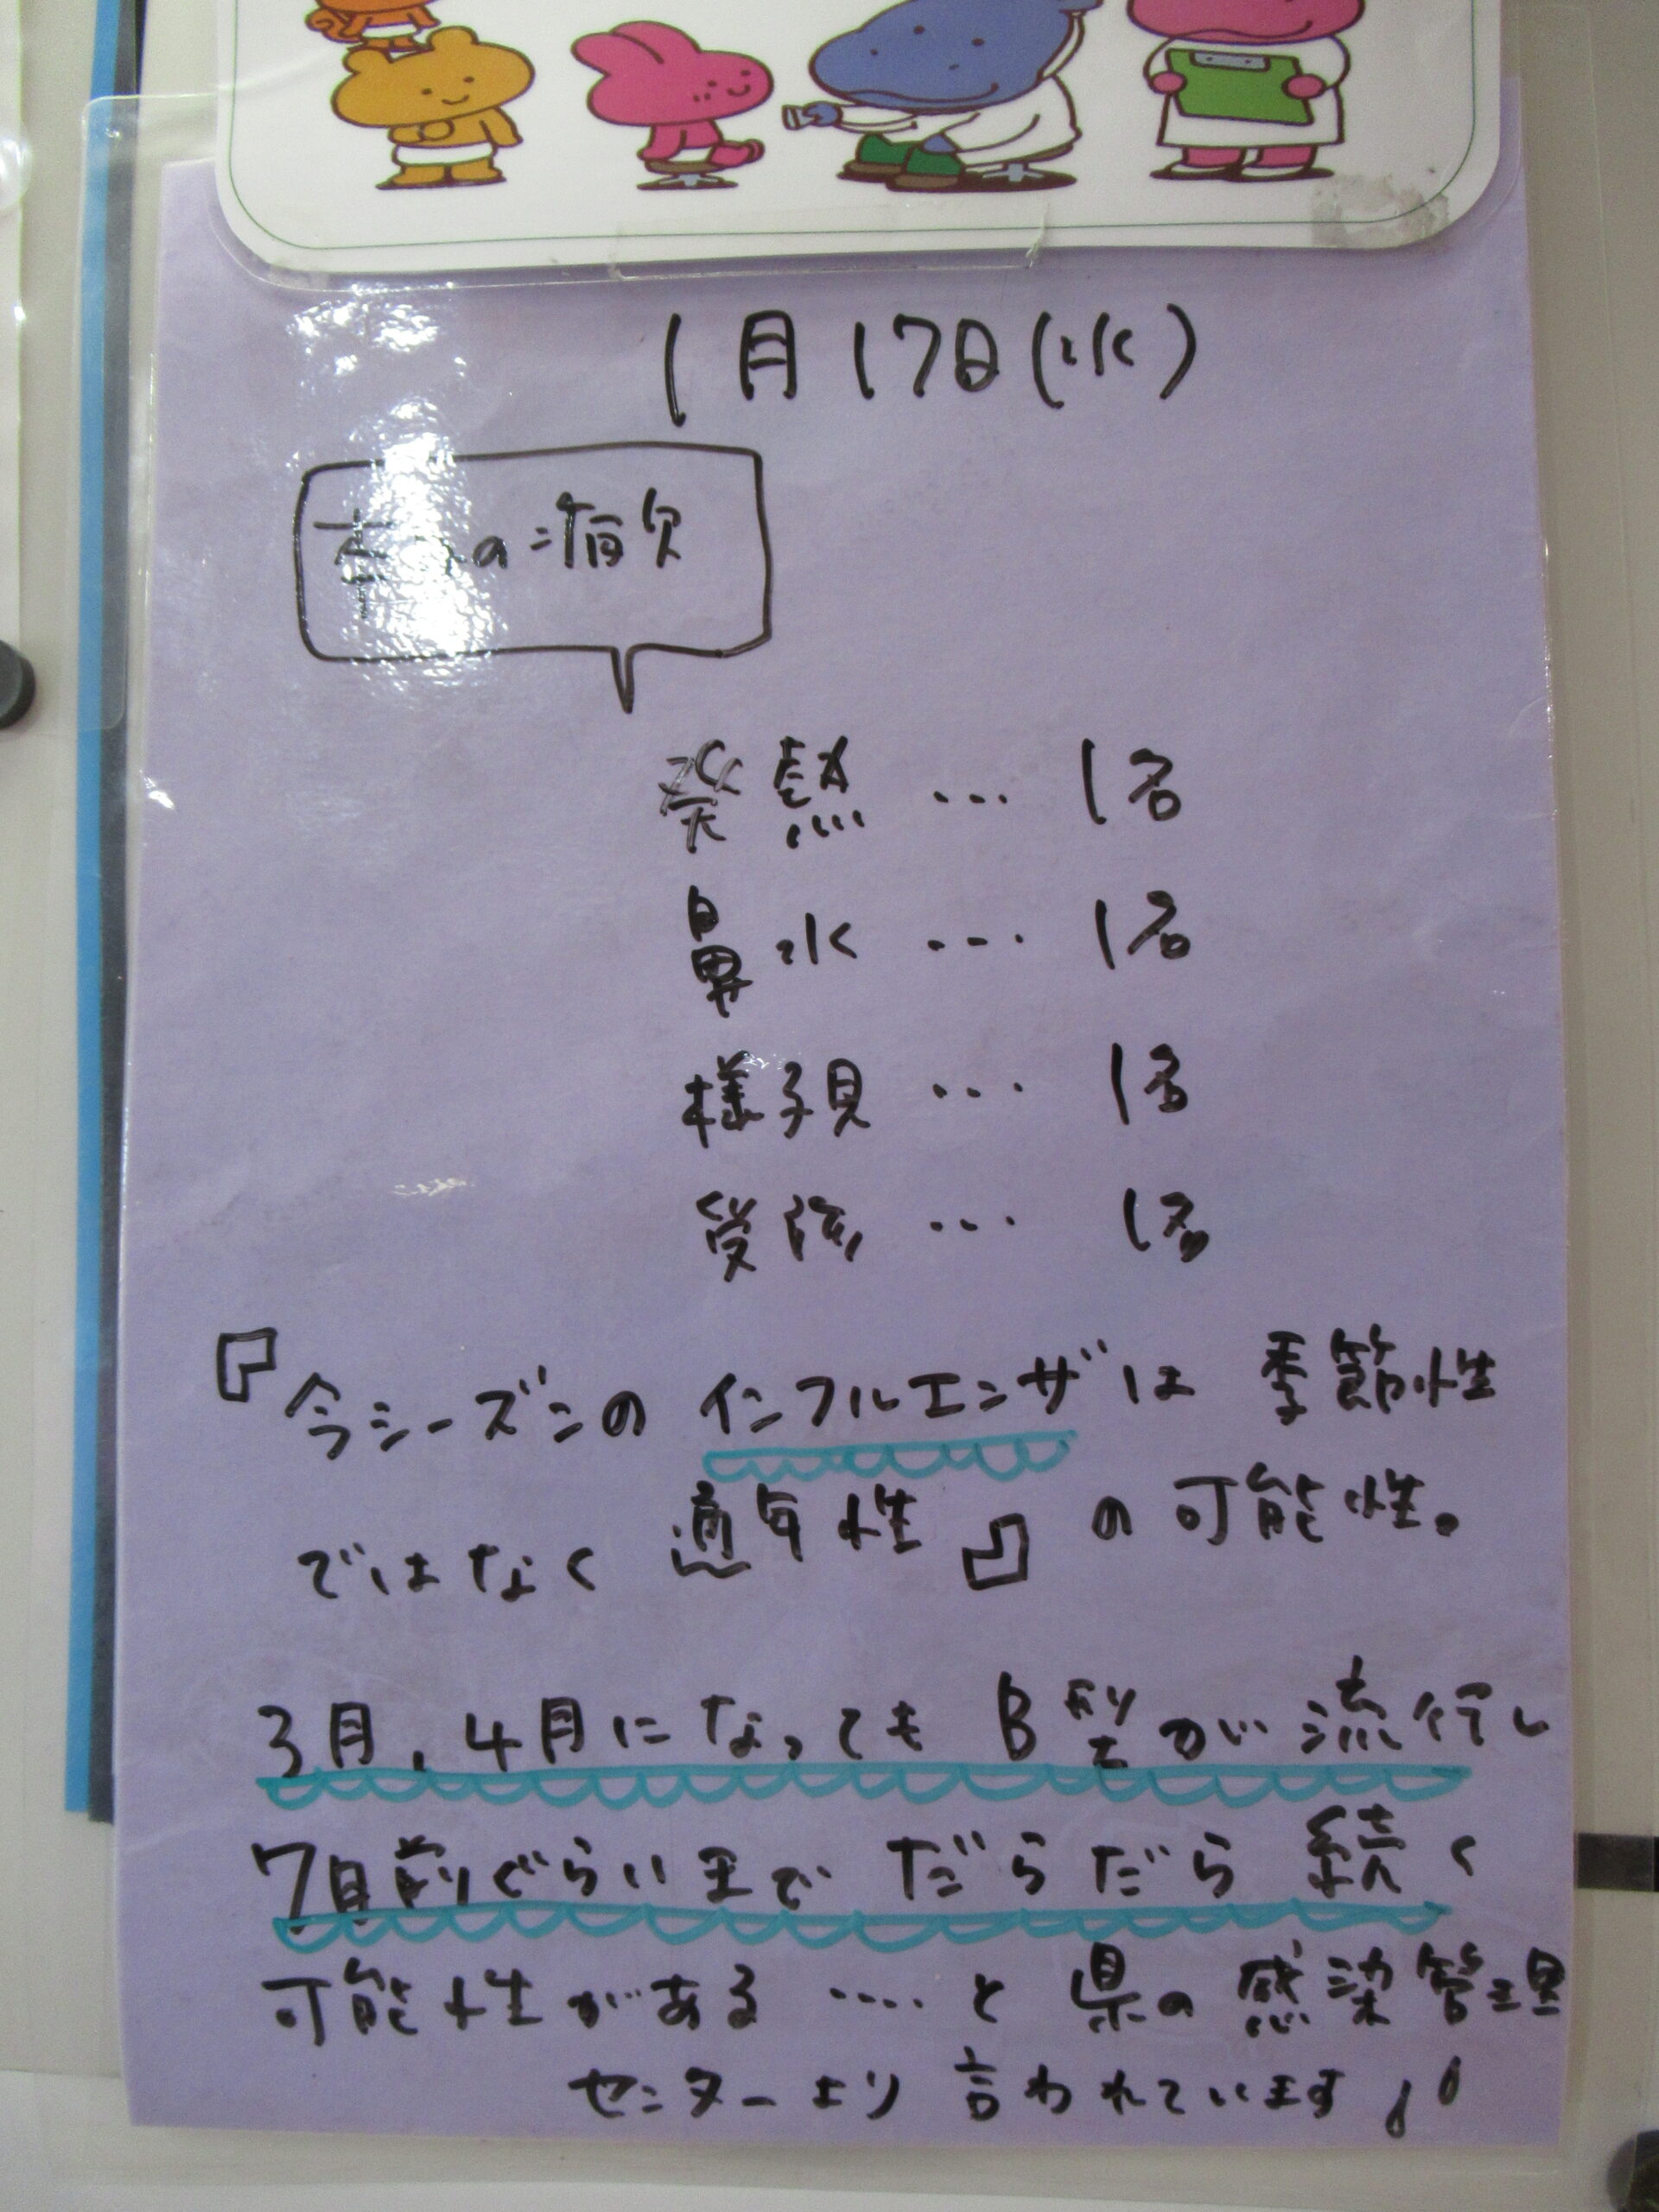 1月17日(水)
の病欠
発熱 … 1名
鼻水 … 1名
様子見 … 1名
受診 … 1名
『今シーズンの インフルエンザは 季節性
ではなく 通年性』の可能性。
3月、4月になっても B型が流行し
7月前ぐらいまで だらだら続く
可能性がある ‥‥ と 県の感染管理
センターより 言われています!!